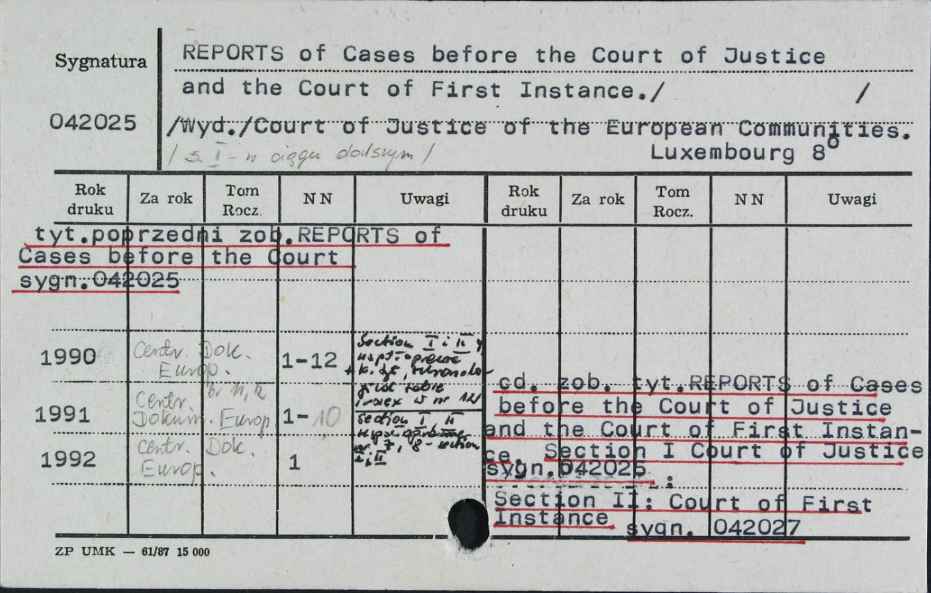 Sygnatura
042025
REPORTS of Cases before the Court of Justice
and the Court of First Instance./ /
/Wyd./Court of Justice of the European Communities.
Luxembourg 8°
/ s. I - w ciągu dalszym /
Rok druku Za rok Tom Rocz. N N Uwagi Rok druku Za rok Tom Rocz. N N Uwagi
tyt.poprzedni zob.REPORTS of
Cases before the Court
sygn.042025
1990 Centr. Dok. Europ. 1-12 Section I i II
1991 Centr. Dokum. Europ. 1-10 Section I II
1992 Centr. Dok. Europ. 1
cd. zob. tyt.REPORTS of Cases
before the Court of Justice
and the Court of First Instan-
ce. Section I Court of Justice
sygn.042025
Section II: Court of First
Instance sygn. 042027
ZP UMK — 61/87 15 000